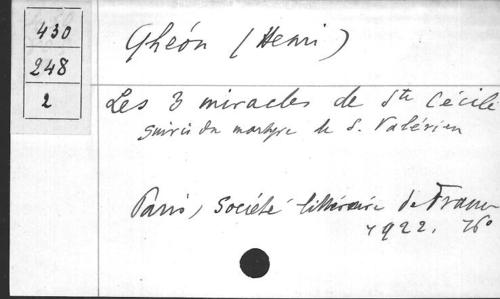 430
248
2
Ghéon (Henri)
Les 3 miracles de Ste Cécile
suivis du martyre de S. Valérien
Paris, Société littéraire de France
1922. 16°